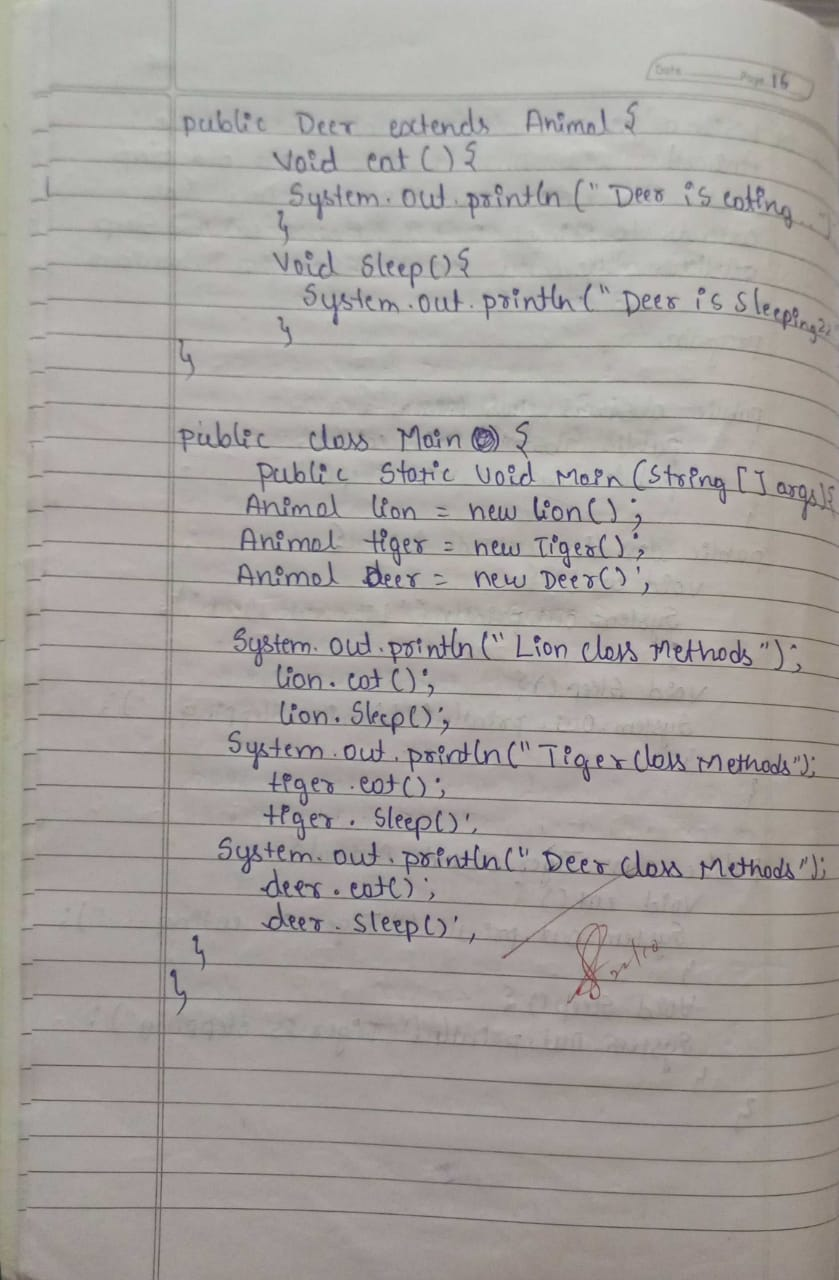 Date Page 15
public Deer extends Animal {
void eat () {
System.out.println (" Deer is eating
}
void sleep () {
System.out.println (" Deer is Sleeping");
}
}
public class Main {
public static void main (String [] args) {
Animal lion = new lion();
Animal tiger = new Tiger();
Animal deer = new Deer();
System.out.println (" Lion class Methods ");
lion.eat();
lion.sleep();
System.out.println (" Tiger class Methods");
tiger.eat();
tiger.sleep();
System.out.println (" Deer class Methods");
deer.eat();
deer.sleep();
}
}